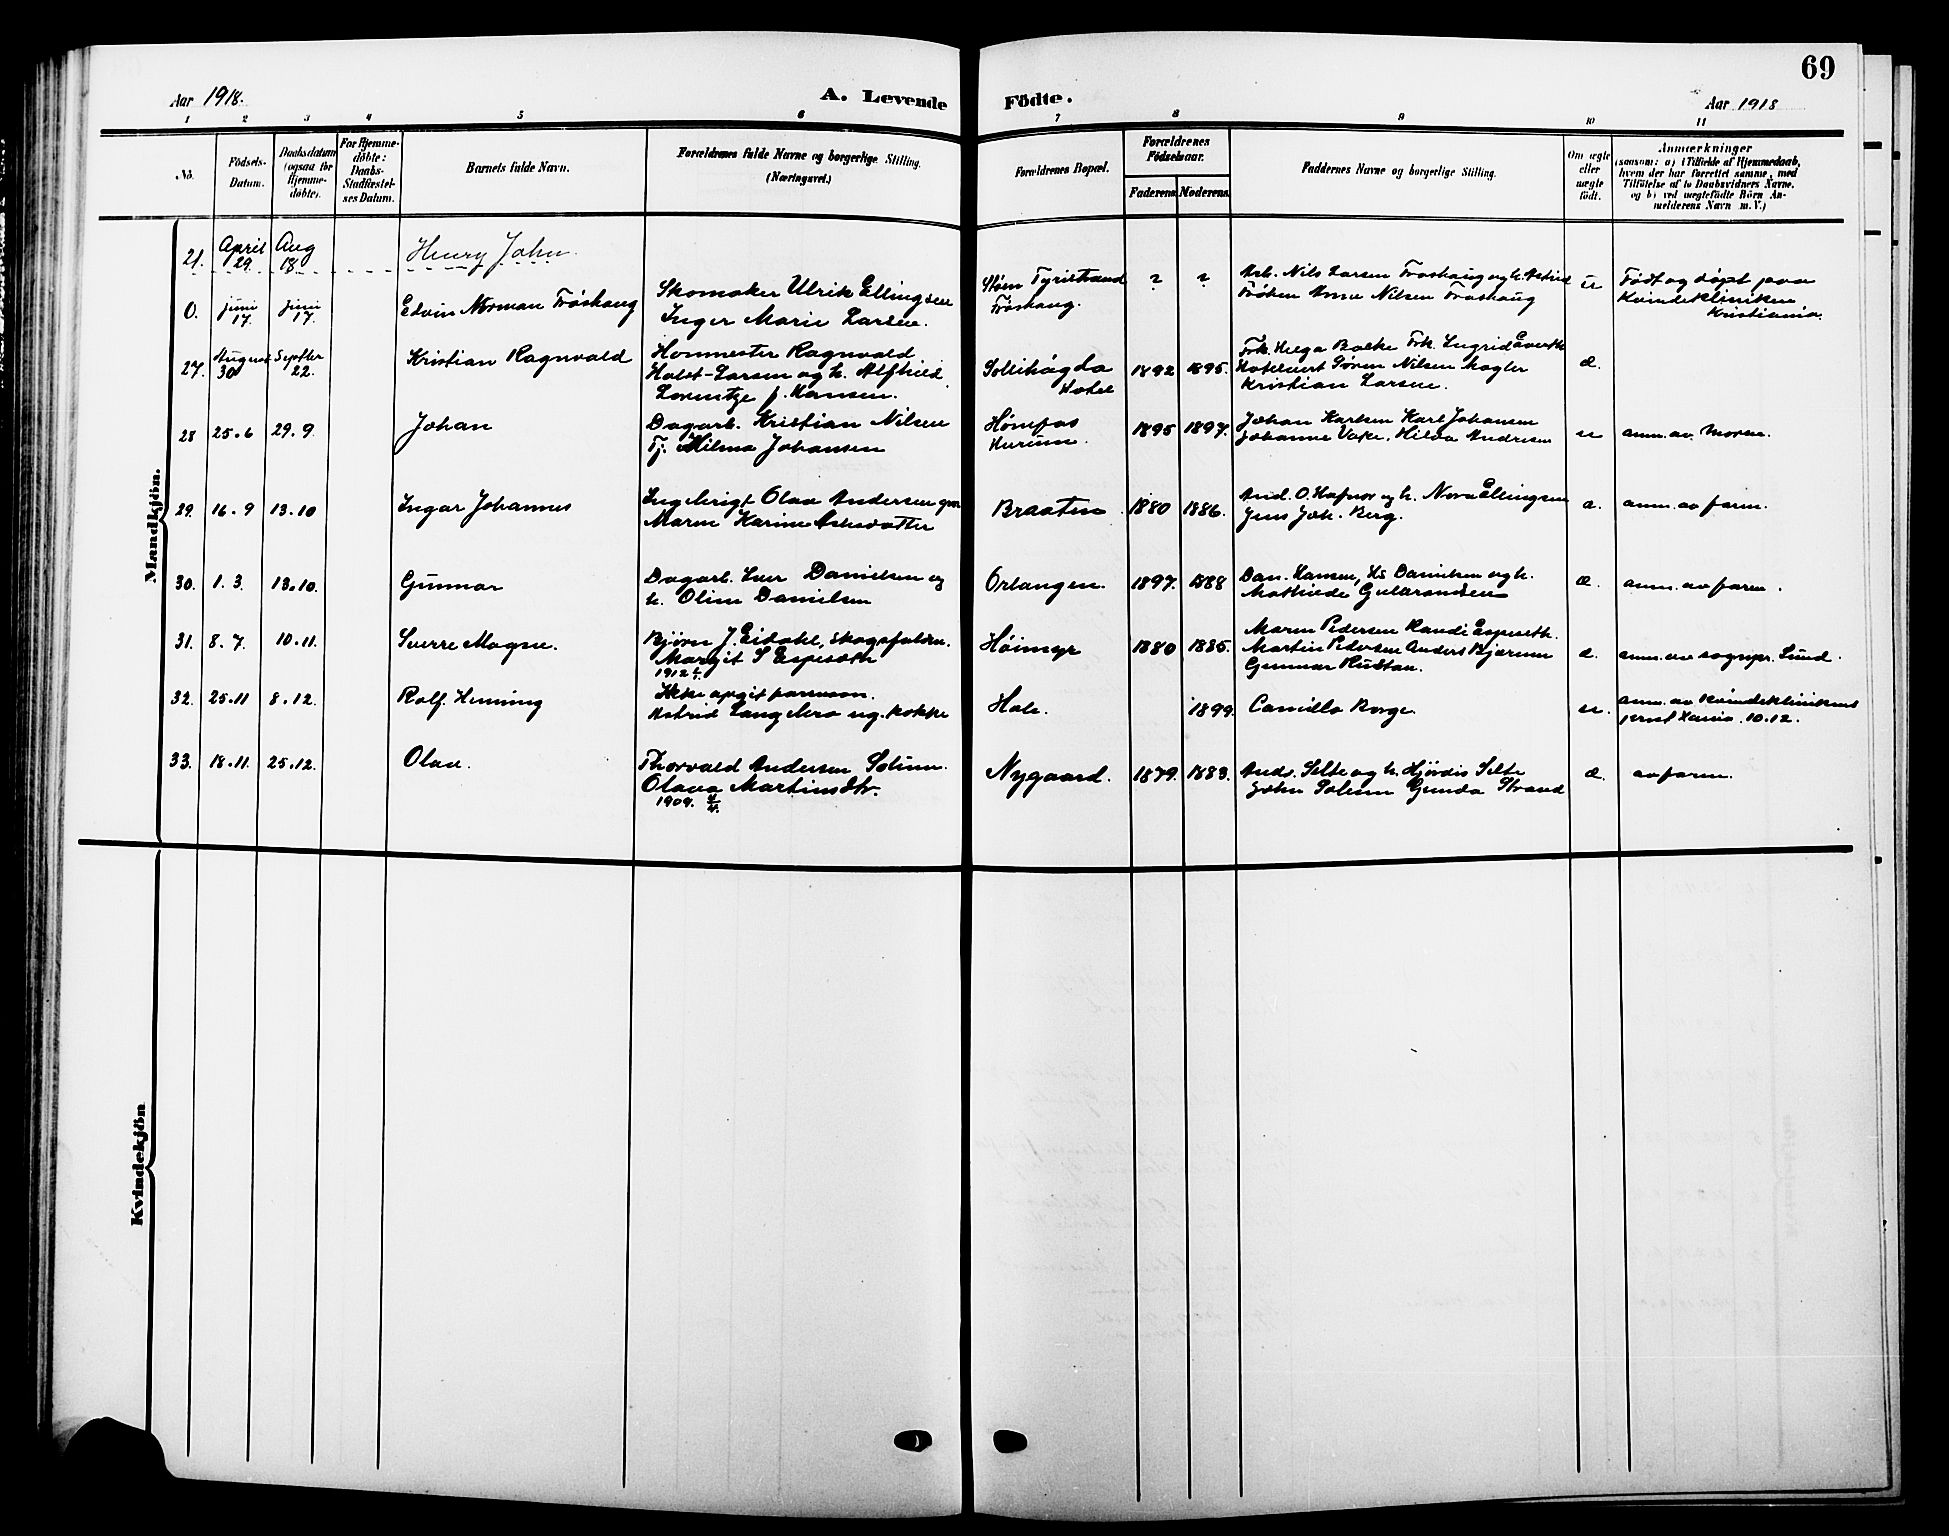 69
Aar 1918.
A. Levende Födte.
Aar 1918
1 2 3 4 5 6 7 8 9 10 11
No.
Födsels-Datum.
Daabsdatum (ogsaa for Hjemme-döbte).
For Hjemme-döbte: Daabs-Stadfæstel-ses Datum.
Barnets fulde Navn.
Forældrenes fulde Navne og borgerlige Stilling. (Næringsvei.)
Forældrenes Bopæl.
Forældrenes Födselsaar.
Faderens. Moderens.
Faddernes Navne og borgerlige Stilling.
Om ægte eller uægte födt.
Anmærkninger
(saasom: a) i Tilfælde af Hjemmedaab, hvem der har forrettet samme, med Tilföielse af to Daabsvidners Navne, og b) ved uægtefödte Börn An-melderens Navn m. V.)
Mandkjön.
21. April 29. Aug 18 Henry John.
O. juni 17. juni 17. Edvin Norman Frøshaug
Skomaker Ulrik Ellingsen
Inger Marie Larsen.
Støen Tyristrand
Frøshaug.
? ?
Arb. Nils Larsen Frøshaug og h. Astrid
Frøken Anna Nilsen Frøshaug
u
Født og døpt paa
Kvindekliniken,
Kristiania.
27. August 30 Septber 22. Kristian Ragnvald
Hovmester Ragnvald
Holst-Larsen og h. Alfhild
Lorentze f. Hansen.
Sollihøgda
Hotel
1892 1895.
Frk. Helga Bakke Frk. Ingrid
Hotelvert Søren Nilsen Mogler
Kristian Larsen.
æ.
28 25.6 29.9. Johan
Dagarb. Kristian Nilsen
Tj. Milma Johansen
Hønefos
Hurum.
1895 1897.
Johan Karlsen Karl Johansen
Johanne Vake, Hilda Andresen
u
anm. av moren.
29. 16.9 13.10 Ingar Johannes
Ingebrigt Olav Andersen
Maren Karine
Braaten
1880 1886.
And. O. Hafnor og h. Nora Ellingsen
Jens Joh. Berg.
æ.
anm. av faren.
30. 1.3. 13.10. Gunnar
Dagarb. Iver Danielsen og
h. Oline Danielsen
Orlangen.
1897. 1888
Dan. Hansen, Hs Danielsen og h.
Mathilde Gulbrandsen
æ.
anm. av faren.
31. 8.7. 10.11. Sverre Magne.
Bjørn J. Eidahl, skogsfuldm.
Margit S Espeseth
1912
Høimyr
1880 1885.
Maren Pedersen Randi Espeseth.
Martin Pedersen Anders Bjærum
Gunnar Rustan.
æ.
anm. av sognpr. Lund.
32. 25.11 8.12. Rolf Henning
Ikke opgit farsnavn.
Astrid Langebro ug. kokke
Hole.
1899.
Camilla Borge
u.
anm. av Kvindeklinikens
10.12.
33. 18.11. 25.12. Olav.
Thorvald Andersen Solum.
Olava Martinsdtr.
1909.
Nygaard.
1879. 1883.
Ands. Selte og h. Hjørdis Selte
John Solum Gunda Strand
æ.
av faren.
Kvindekjön